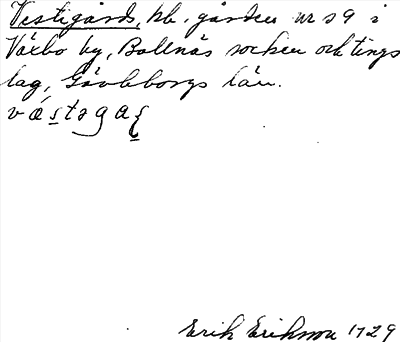 Vestigård, hb. gården nr 59 i
Växbo by, Bollnäs socken och tings
lag, Gävleborgs län.
Erik Eriksson 1729